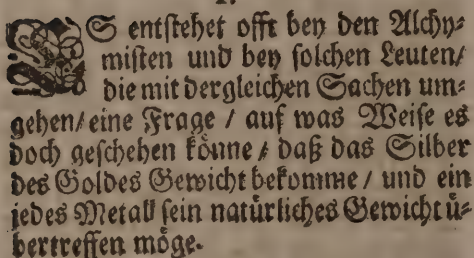 ES entstehet offt bey den Alchy-
misten und bey solchen Leuten/
die mit dergleichen Sachen um-
gehen/ eine Frage / auf was Weise es
doch geschehen könne / daß das Silber
des Goldes Gewicht bekomme / und ein
jedes Metall sein natürliches Gewicht ü-
bertreffen möge.